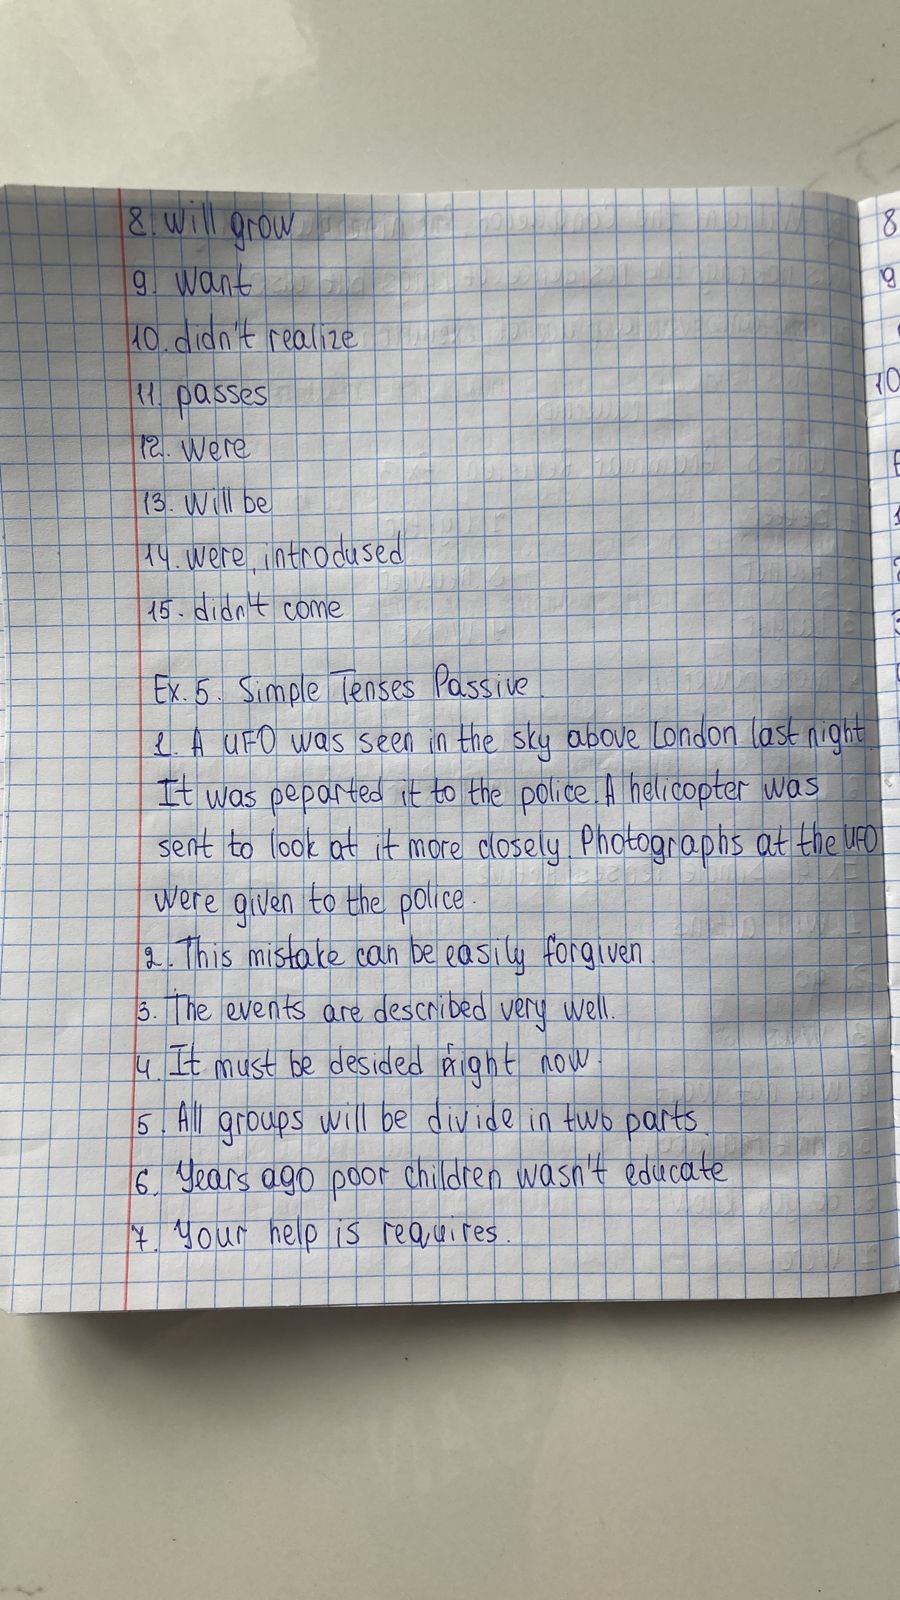 8. will grow
9. want
10. didn't realize
11. passes
12. were
13. will be
14. were, introdused
15. didn't come
Ex. 5. Simple Tenses Passive.
1. A UFO was seen in the sky above London last night.
It was peparted it to the police. A helicopter was
sent to look at it more closely. Photographs at the UFO
were given to the police.
2. This mistake can be easily forgiven.
3. The events are described very well.
4. It must be desided right now.
5. All groups will be divide in two parts.
6. Years ago poor children wasn't educate
7. Your help is requires.
8
9
10